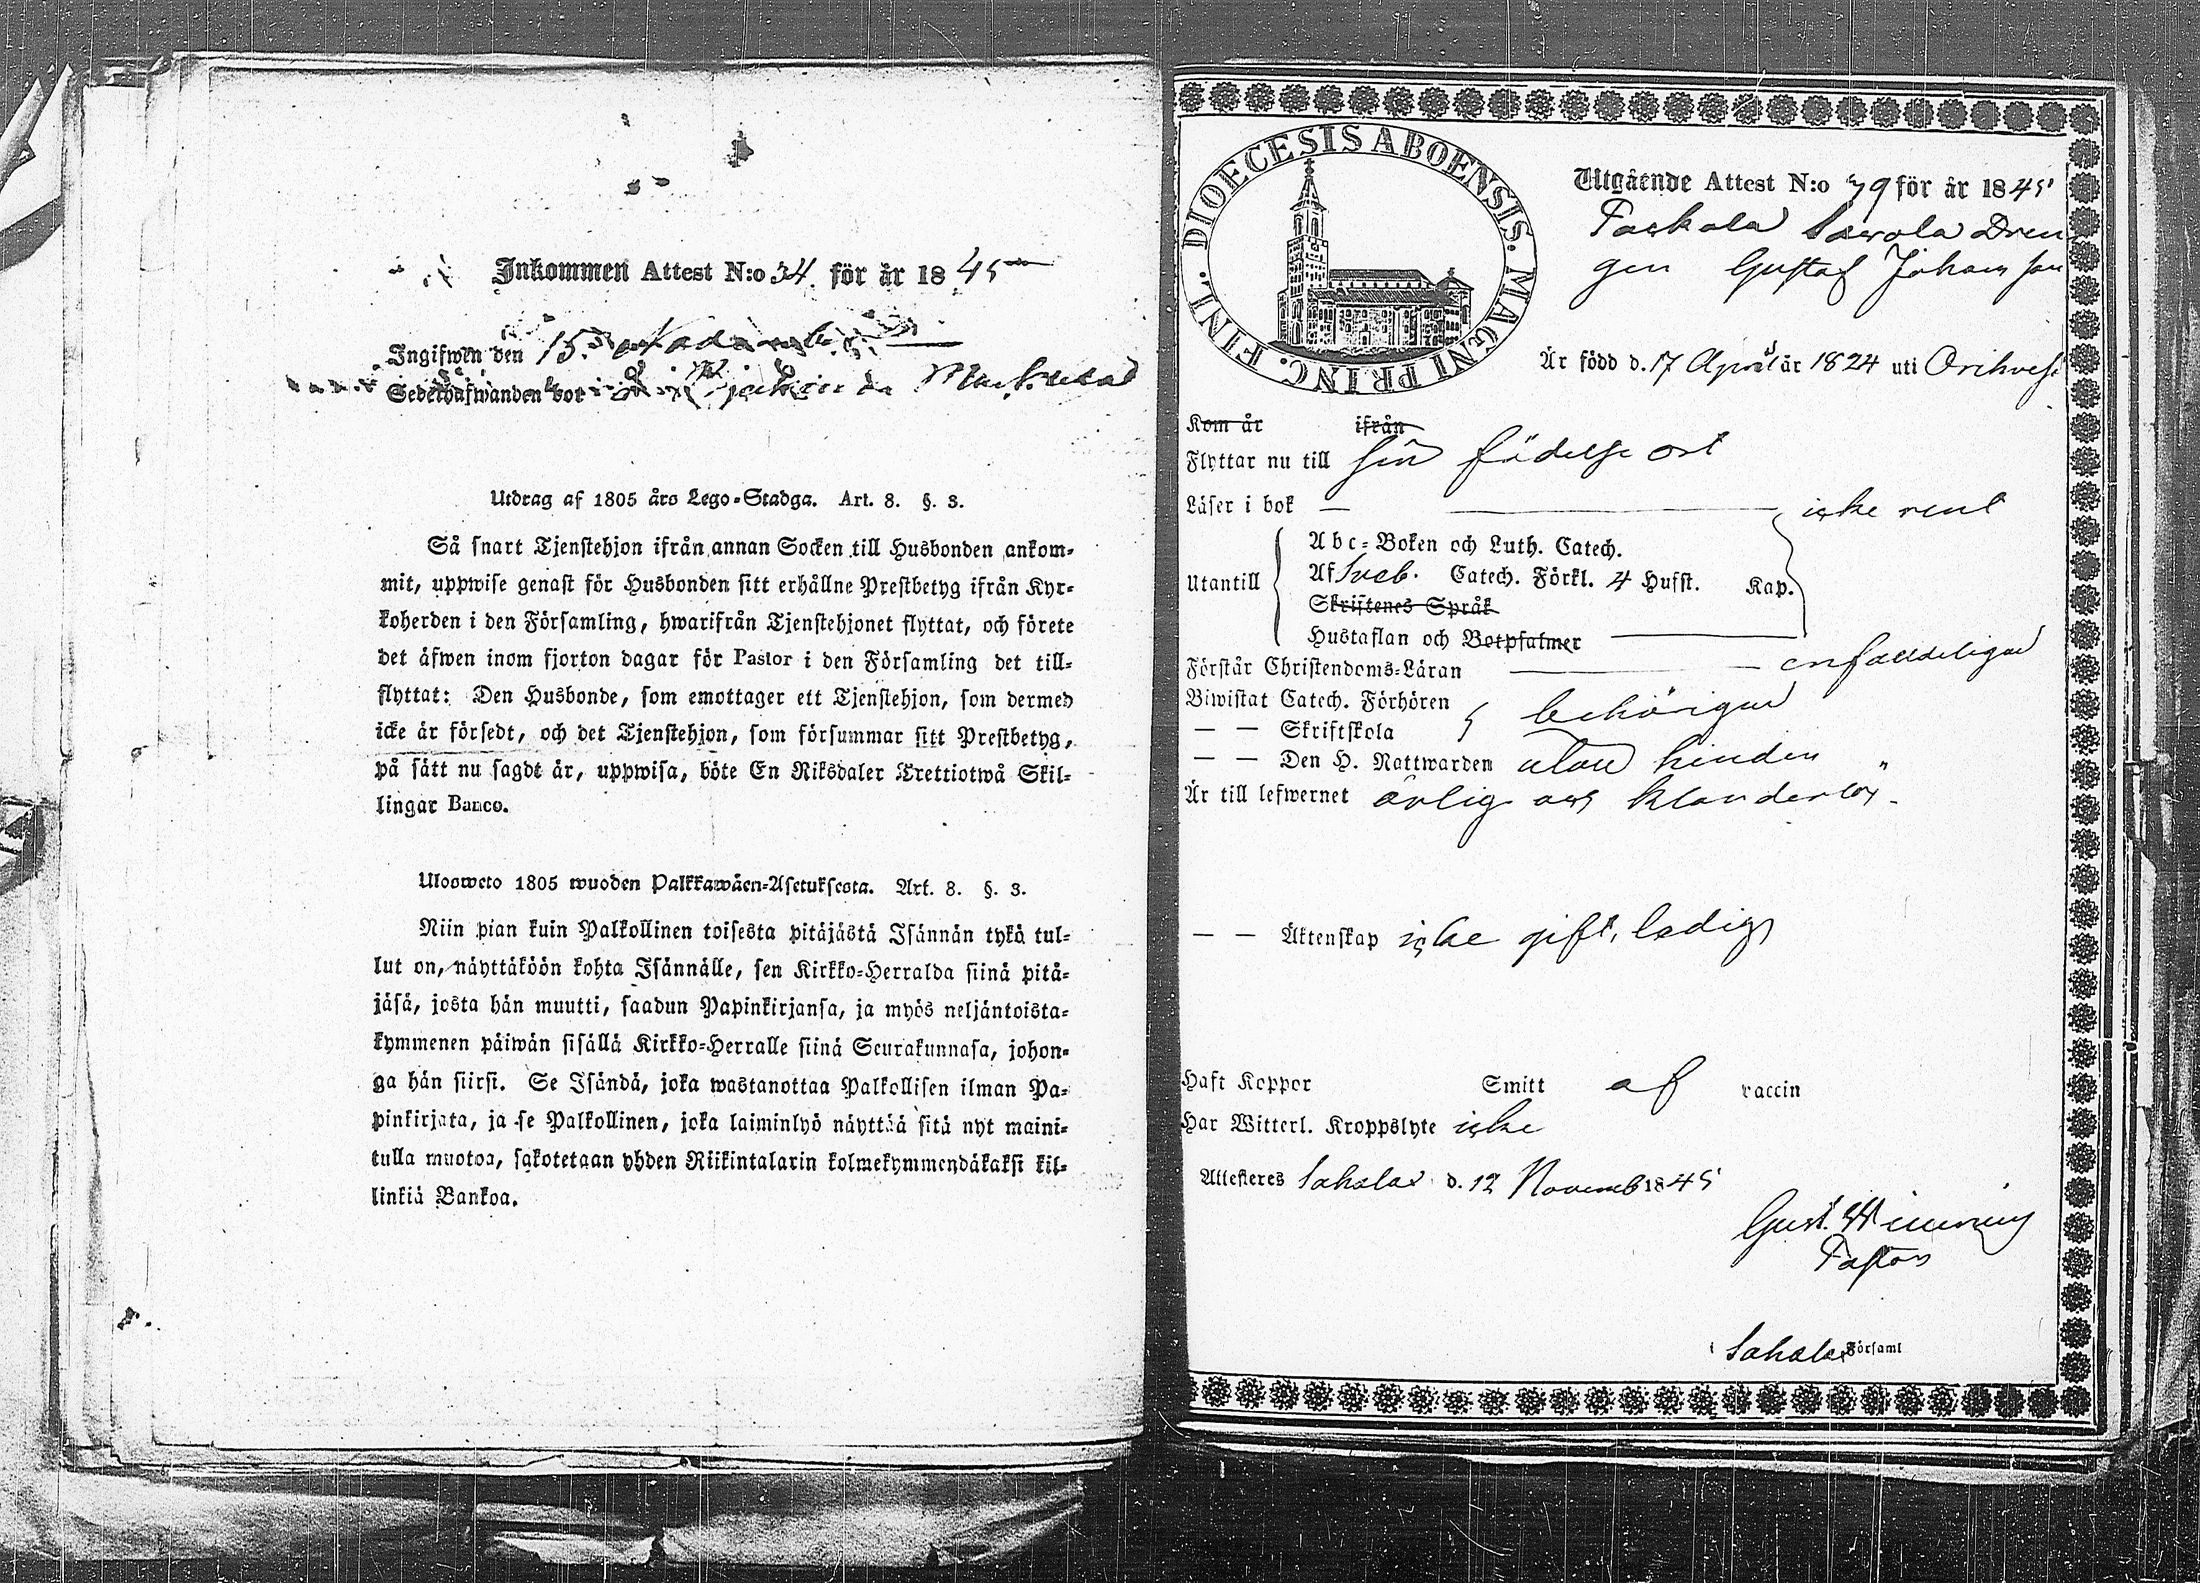 Inkommen Attest N:o 34. för år 1845
Ingifwen den 15
Sedeshafwanden bor
Utdrag af 1805 års Lego-Stadga. Art. 8. §. 3.
Så snart Tjenstehjon ifrån annan Socken till Husbonden ankom-
mit, uppwise genast för Husbonden sitt erhållne Prestbetyg ifrån Kyr-
koherden i den Församling, hwarifrån Tjenstehjonet flyttat, och förete
det äfwen inom fjorton dagar för Pastor i den Församling det till-
flyttat: Den Husbonde, som emottager ett Tjenstehjon, som dermed
icke är försedt, och det Tjenstehjon, som försummar sitt Prestbetyg,
på sätt nu sagdt är, uppwisa, böte En Riksdaler Trettiotwå Skil-
lingar Banco.
Ulosweto 1805 wuoden Palkkawäen-Asetuksesta. Art. 8. §. 3.
Niin pian kuin Palkollinen toisesta pitäjästä Isännän tykö tul-
lut on, näyttäköön kohta Isännälle, sen Kirkko-Herralda siinä pitä-
jäsä, josta hän muutti, saadun Papinkirjansa, ja myös neljäntoista-
kymmenen päiwän sisällä Kirkko-Herralle siinä Seurakunnasa, johon-
ga hän siirsi. Se Isändä, joka wastanottaa Palkollisen ilman Pa-
pinkirjata, ja se Palkollinen, joka laiminlyö näyttää sitä nyt maini-
tulla muotoa, sakotetaan yhden Riikintalarin kolmekymmendäkaksi kil-
linkiä Bankoa.
DIOECESIS ABOENSIS. MAGNI PRINC. FINL.
Utgående Attest N:o 79 för år 1845
Saxola Dren
gen Gustaf Johansson
Är född d. 17 April år 1824 uti Orihvesi
Kom år ifrån
Flyttar nu till sin födelse ort
Läser i bok — icke rent
Abc-Boken och Luth. Catech.
Utantill Af Sveb. Catech. Förkl. 4 Hufst. Kap.
Skriftenes Språk
Hustaflan och Botpsalmer
Förstår Christendoms-Läran — enfalldeligen
Biwistat Catech. Förhören behörigen
— — Skriftskola
— — Den H. Nattwarden utan hinder
Är till lefwernet ärlig och klanderlös.
— — Äktenskap icke gift, ledig
Haft Koppor Smitt af vaccin
Har Witterl. Kroppslyte icke
Attesteres Sahalax d. 12 Novemb 1845
Gust.
Pastor
i Sahalax Församl